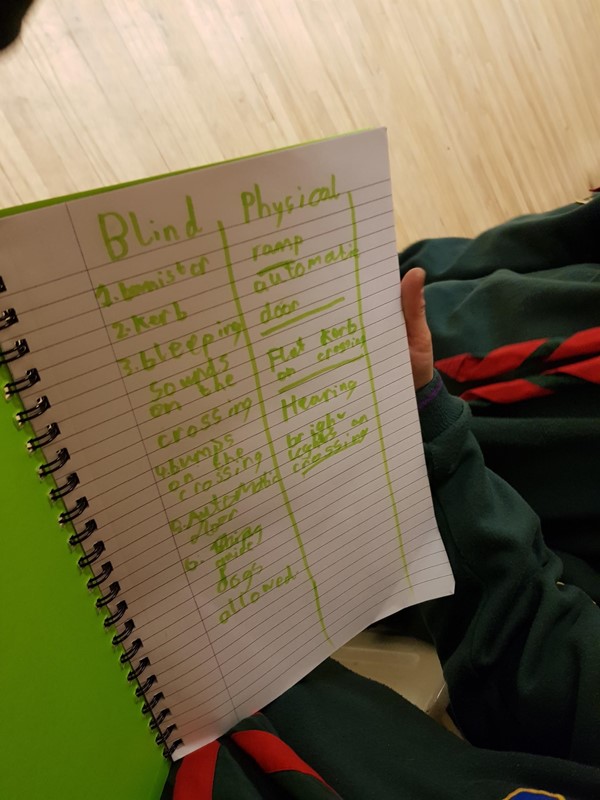 Blind
1. banister
2. kerb
3. bleeping
sounds
on the
crossing
4. bumps
on the
crossing
5. Automatic
door
6.
guide
dogs
allowed
Physical
ramp
automatic
door
Flat kerb
on crossing
Hearing
bright
lights on
crossing